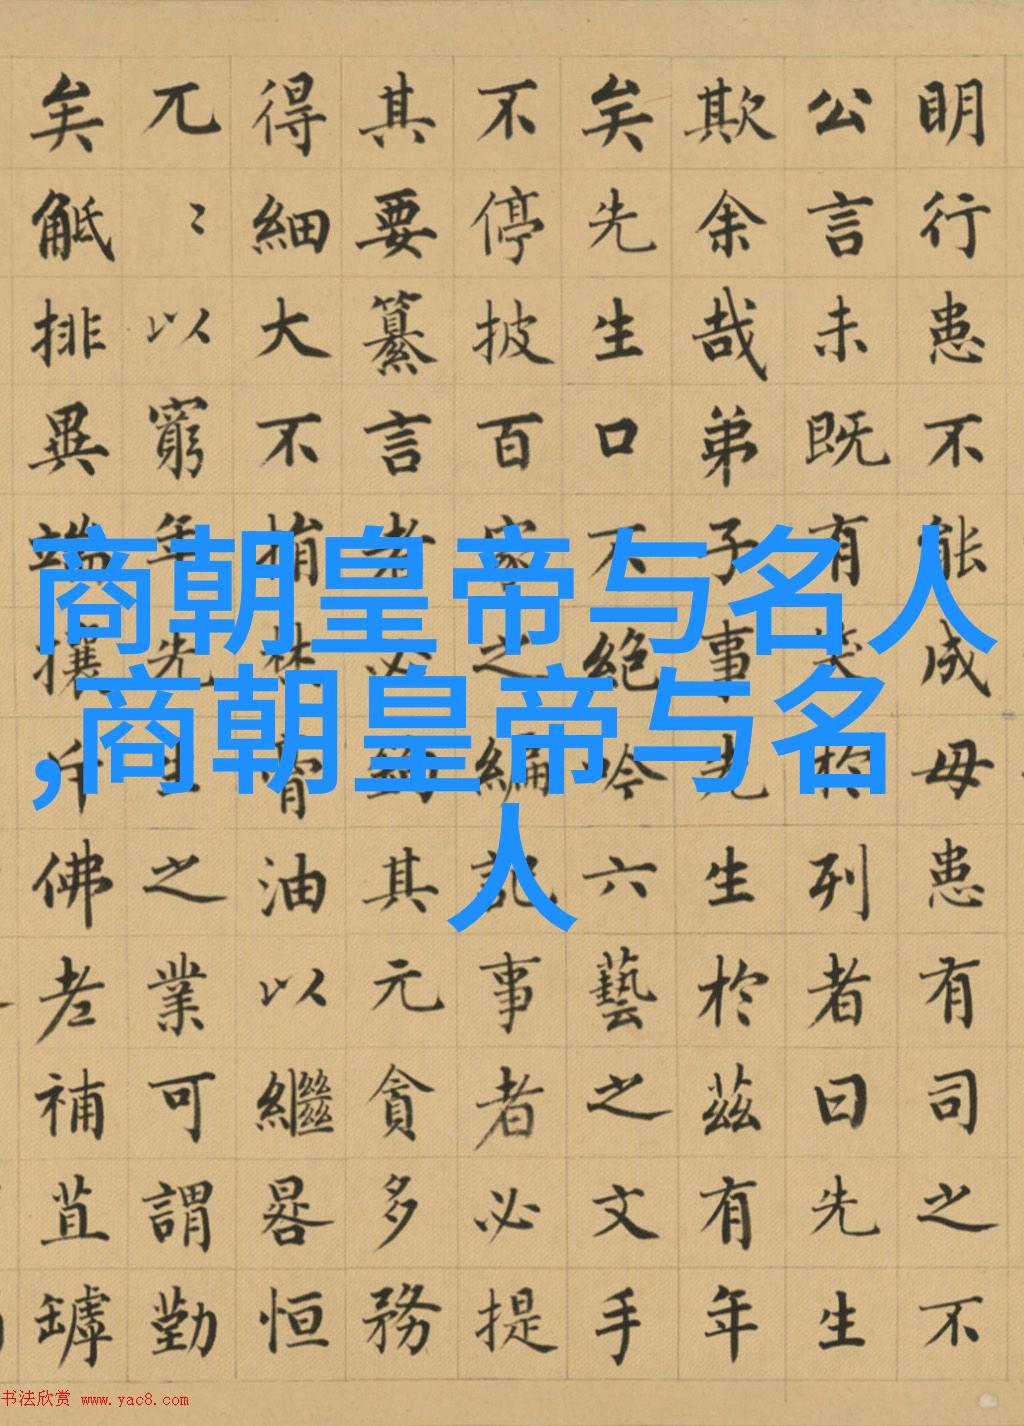 商朝皇帝与名人
,商朝皇帝与名
人
明行患不能成毋患有司之不
公言未既有笑於列者曰先生
欺余哉弟子事先生於茲有年
矣先生口不絕吟六藝之文手
不停披百家之編記事者必提
其要纂言者必鈎其元貪多務
得細大不捐焚膏油以繼晷恒
兀〻以窮年先生之業可謂勤
矣觝排異端攘斥佛老補苴罅
书法欣赏 www.yac8.com